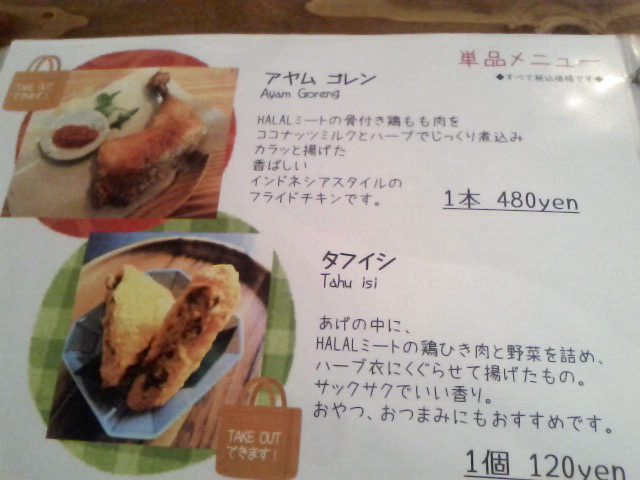 単品メニュー
◆すべて税込価格です◆
TAKE OUT
できます!
アヤム ゴレン
Ayam Goreng
HALALミートの骨付き鶏もも肉を
ココナッツミルクとハーブでじっくり煮込み
カラッと揚げた
香ばしい
インドネシアスタイルの
フライドチキンです。
1本 480yen
タフイシ
Tahu isi
あげの中に、
HALALミートの鶏ひき肉と野菜を詰め、
ハーブ衣にくぐらせて揚げたもの。
サックサクでいい香り。
おやつ、おつまみにもおすすめです。
TAKE OUT
できます!
1個 120yen